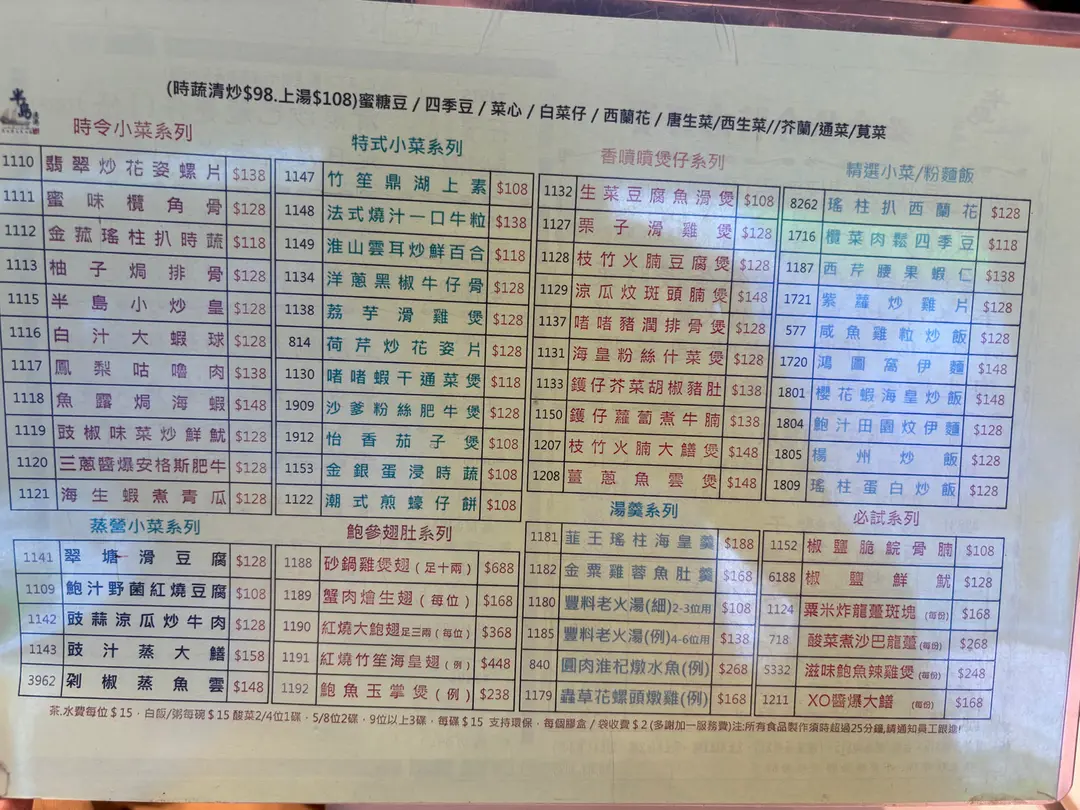 半島
(時蔬清炒$98.上湯$108)蜜糖豆 / 四季豆 / 菜心 / 白菜仔 / 西蘭花 / 唐生菜/西生菜//芥蘭/通菜/莧菜
時令小菜系列
1110 翡翠炒花姿螺片 $138
1111 蜜味欖角骨 $128
1112 金菰瑤柱扒時蔬 $118
1113 柚子焗排骨 $128
1115 半島小炒皇 $128
1116 白汁大蝦球 $128
1117 鳳梨咕嚕肉 $138
1118 魚露焗海蝦 $148
1119 豉椒味菜炒鮮魷 $128
1120 三蔥醬爆安格斯肥牛 $128
1121 海生蝦煮青瓜 $128
特式小菜系列
1147 竹笙鼎湖上素 $108
1148 法式燒汁一口牛粒 $138
1149 淮山雲耳炒鮮百合 $118
1134 洋蔥黑椒牛仔骨 $128
1138 荔芋滑雞煲 $128
814 荷芹炒花姿片 $128
1130 啫啫蝦干通菜煲 $118
1909 沙爹粉絲肥牛煲 $128
1912 怡香茄子煲 $108
1153 金銀蛋浸時蔬 $108
1122 潮式煎蠔仔餅 $108
香噴噴煲仔系列
1132 生菜豆腐魚滑煲 $108
1127 栗子滑雞煲 $128
1128 枝竹火腩豆腐煲 $128
1129 涼瓜炆斑頭腩煲 $148
1137 啫啫豬潤排骨煲 $128
1131 海皇粉絲什菜煲 $128
1133 鑊仔芥菜胡椒豬肚 $138
1150 鑊仔蘿蔔煮牛腩 $138
1207 枝竹火腩大鱔煲 $148
1208 薑蔥魚雲煲 $148
精選小菜/粉麵飯
8262 瑤柱扒西蘭花 $128
1716 欖菜肉鬆四季豆 $118
1187 西芹腰果蝦仁 $138
1721 紫蘿炒雞片 $128
577 咸魚雞粒炒飯 $128
1720 鴻圖窩伊麵 $148
1801 櫻花蝦海皇炒飯 $148
1804 鮑汁田園炆伊麵 $128
1805 楊州炒飯 $128
1809 瑤柱蛋白炒飯 $128
蒸營小菜系列
1141 翠塘滑豆腐 $128
1109 鮑汁野菌紅燒豆腐 $108
1142 豉蒜涼瓜炒牛肉 $128
1143 豉汁蒸大鱔 $158
3962 剁椒蒸魚雲 $148
鮑參翅肚系列
1188 砂鍋雞煲翅(足十兩) $688
1189 蟹肉燴生翅(每位) $168
1190 紅燒大鮑翅足三兩(每位) $368
1191 紅燒竹笙海皇翅(例) $448
1192 鮑魚玉掌煲(例) $238
湯羹系列
1181 韮王瑤柱海皇羹 $188
1182 金粟雞蓉魚肚羹 $168
1180 豐料老火湯(細)2-3位用 $108
1185 豐料老火湯(例)4-6位用 $138
840 圓肉淮杞燉水魚(例) $268
1179 蟲草花螺頭燉雞(例) $168
必試系列
1152 椒鹽脆鯇骨腩 $108
6188 椒鹽鮮魷 $128
1124 粟米炸龍躉斑塊(每份) $168
718 酸菜煮沙巴龍躉(每份) $268
5332 滋味鮑魚辣雞煲(每份) $248
1211 XO醬爆大鱔(每份) $168
茶.水費每位$15﹐白飯/粥每碗$15 酸菜2/4位1碟﹐5/8位2碟﹐9位以上3碟﹐每碟$15 支持環保﹐每個膠盒/袋收費$2(多謝加一服務費)注:所有食品製作須時超過25分鐘,請通知員工跟進!